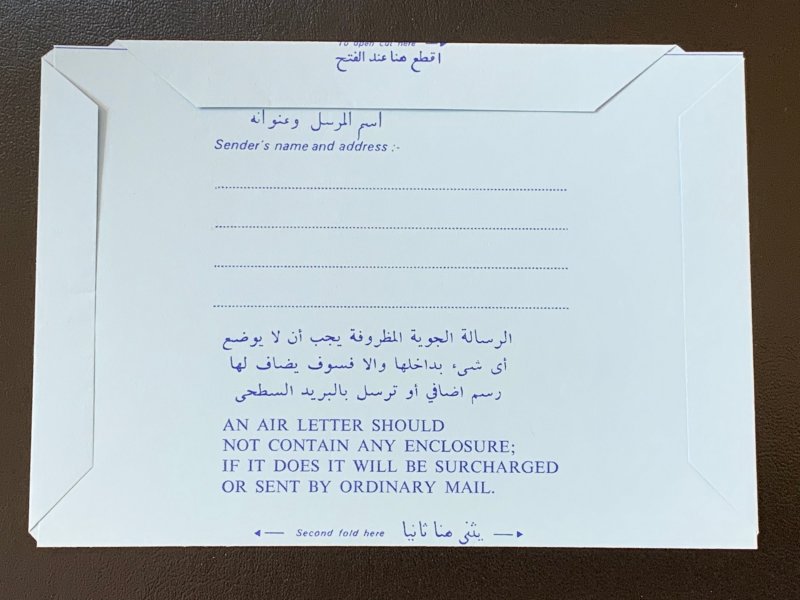 To open cut here
اقطع هنا عند الفتح
اسم المرسل وعنوانه
Sender's name and address :-
الرسالة الجوية المظروفة يجب أن لا يوضع
أى شىء بداخلها والا فسوف يضاف لها
رسم اضافي أو ترسل بالبريد السطحى
AN AIR LETTER SHOULD
NOT CONTAIN ANY ENCLOSURE;
IF IT DOES IT WILL BE SURCHARGED
OR SENT BY ORDINARY MAIL.
Second fold here يثنى هنا ثانيا